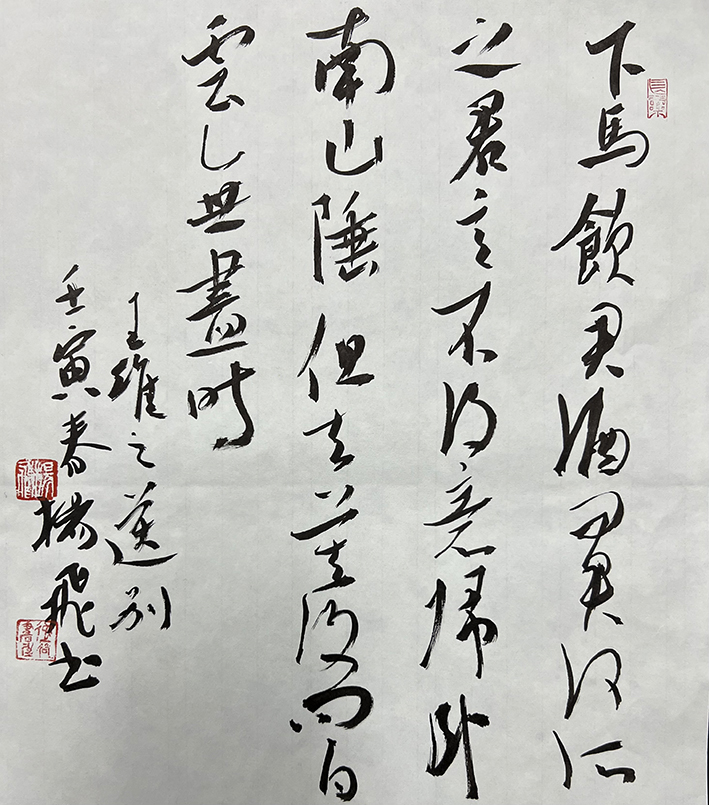 下馬飲君酒問君何所
之君言不得意歸臥
南山陲但去莫復問白
雲無盡時
王維之送别
壬寅春楊飛书
長樂